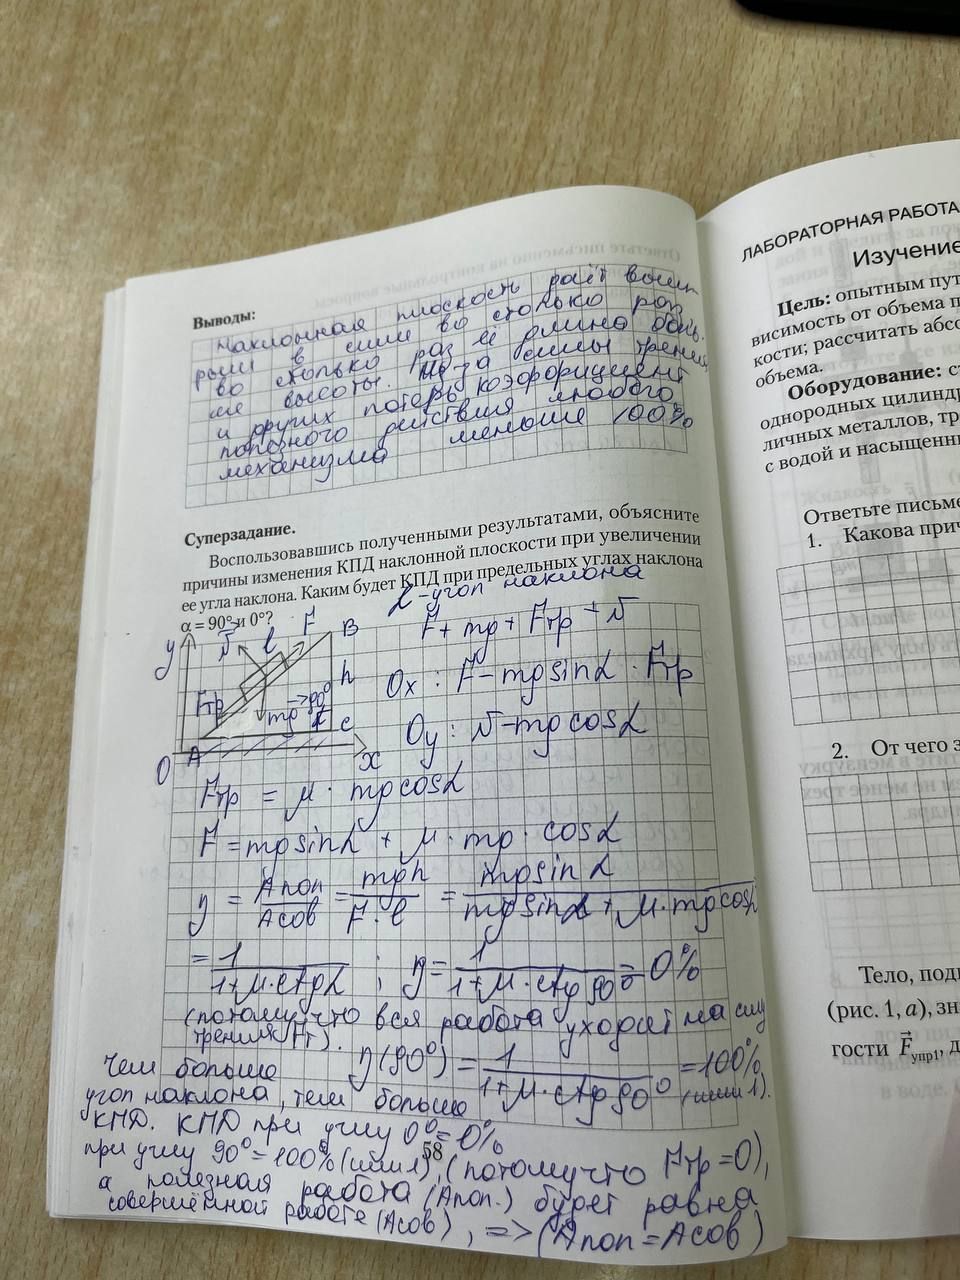 Выводы:
Наклонная плоскость даёт выиг-
рыш в силе во столько раз,
во сколько раз её длина боль-
ше высоты. Из-за силы трения
и других потерь коэффициент
полезного действия любого
механизма меньше 100%
Суперзадание.
Воспользовавшись полученными результатами, объясните
причины изменения КПД наклонной плоскости при увеличении
ее угла наклона. Каким будет КПД при предельных углах наклона
α = 90° и 0°?
α - угол наклона
y N l F B
F + mg + Fтр + N
Fтр mg 90° h
Ox : F - mgsinα · Fтр
A C
Oy : N - mgcosα
O x
Fтр = μ · mgcosα
F = mgsinα + μ · mg · cosα
η = Aпол/Aсов = mgh/F·l = mgsinα/mgsinα + μ·mgcosα
= 1/1+μ·ctgα ; η = 1/1+μ·ctg90° = 0%
(потому что вся работа уходит на силу
трения Fт).
η(90°) = 1/1+μ·ctg90° = 100% (или 1).
Чем больше
угол наклона, тем больше
КПД. КПД при углу 0° = 0%
58
при углу 90° = 100% (или 1), (потому что Fтр = 0),
а полезная работа (Aпол.) будет равна
совершённой работе (Aсов), => (Aпол = Aсов)
ЛАБОРАТОРНАЯ РАБОТА
Изучение
Цель: опытным пут
висимость от объема п
кости; рассчитать абсо
объема.
Оборудование: ст
однородных цилиндр
личных металлов, тр
с водой и насыщенн
Ответьте письме
1. Какова прич
2. От чего з
Тело, подв
(рис. 1, а), зн
гости Fупр1, д